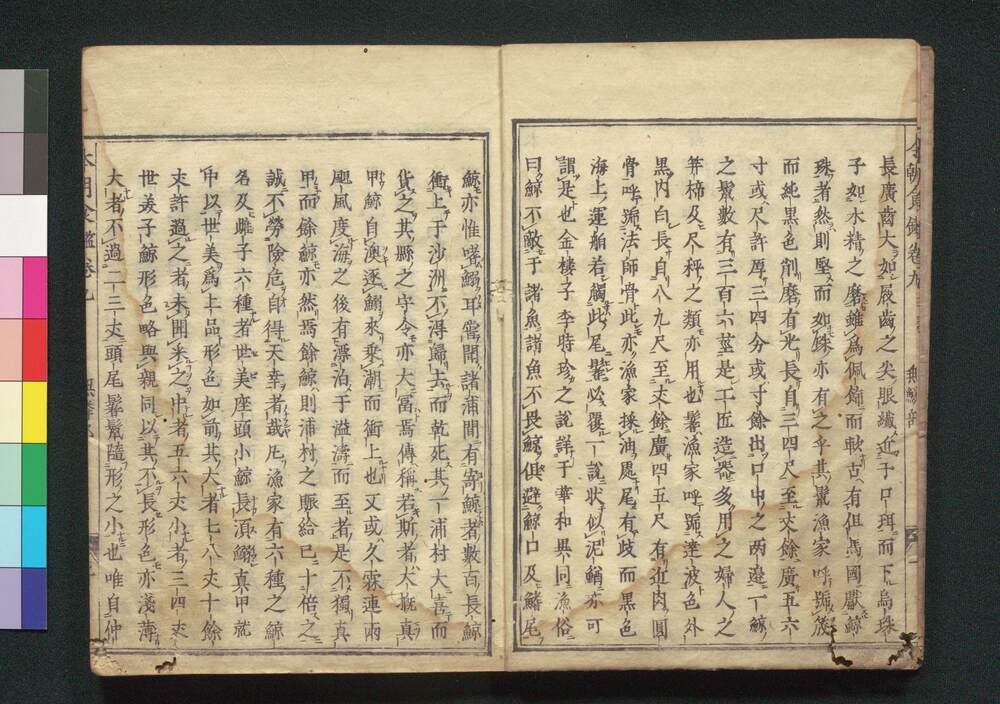 長廣齒大如屐齒之尖眼纖近于口珥而下烏珠
子如水精之磨雖爲佩飾而軟古有但馬國獻鯨
珠者然則堅而如銤亦有之乎其鬚漁家呼號筬
而純黒色削磨有光長自三四尺至丈餘廣五六
寸或尺許厚三四分或寸餘出口中之两邉一鯨
之鬚數有三百六莖是工匠造器多用之婦人之
笄柹及尺秤之類亦用也鬐漁家呼號達波色外
黒内白長自八九尺至丈餘廣四五尺有近肉圓
骨呼號法師骨此亦漁家採油處尾有歧而黒色
海上運舶若觸此尾鬐必覆一說状似泥鰌亦可
謂是也金樓子李時珍之說詳于華和異同漁俗
曰鯨不敵于諸魚諸魚不畏鯨俱避鯨口及鰭尾
今朝食鑑卷九
無鱗部
鯨亦惟嗜鰯耳嘗聞諸浦間有寄鯨者數百長鯨
衝上于沙洲不得歸去而乾死其一浦村大喜而
貨之其縣之守令亦大冨焉傳稱若斯者大抵真
甲鯨自澳逐鰯來乗潮而衝上也又或久霖連雨
颶風度海之後有漂泊于溢濤而至者是不獨真
甲而餘鯨亦然焉餘鯨則浦村之賑給已十倍之
誠不勞險危自得天幸者哉凡漁家有六種之鯨
名及雌子六種者世美座頭小鯨長須鰯真甲就
中以世美爲上品形色如前其大者七八丈十餘
丈許過之者未聞米之中者五六丈小者三四丈
世美子鯨形色略與親同以其不長形色亦淺薄
大者不過二三丈頭尾鬐鬣隨形之小也唯自仲
本朝食鑑卷九